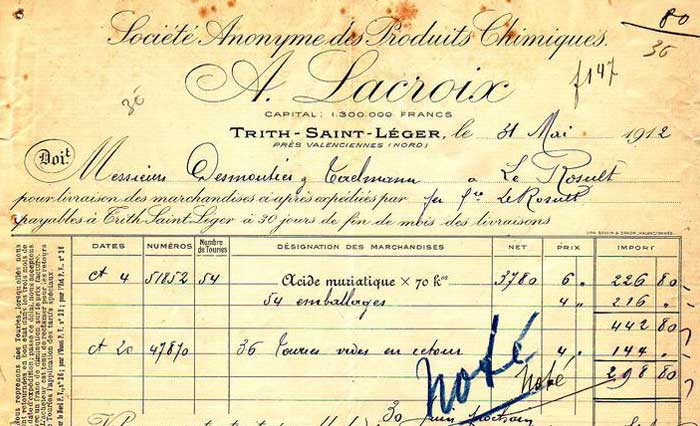 80
Société Anonyme des Produits Chimiques.
36
A. Lacroix
f 147
CAPITAL: 1.300.000 FRANCS
30
TRITH-SAINT-LÉGER, le 31 Mai 1912
PRÈS VALENCIENNES (NORD)
Doit Messieurs Desmoutiers & Taelmann à Le Rosult
pour livraison des marchandises ci-après expédiées par fer fco Le Rosult
payables à Trith-Saint-Léger à 30 jours de fin de mois des livraisons
DATES NUMÉROS Nombre de Touries DÉSIGNATION DES MARCHANDISES NET PRIX IMPORT
ct 4 51852 54 Acide muriatique × 70 kos 3780 6 " 226 80
54 emballages 4 " 216 "
442 80
ct 20 47870 36 Touries vides en retour 4 " 144 "
298 80
Noté
Noté
30 Juin prochain